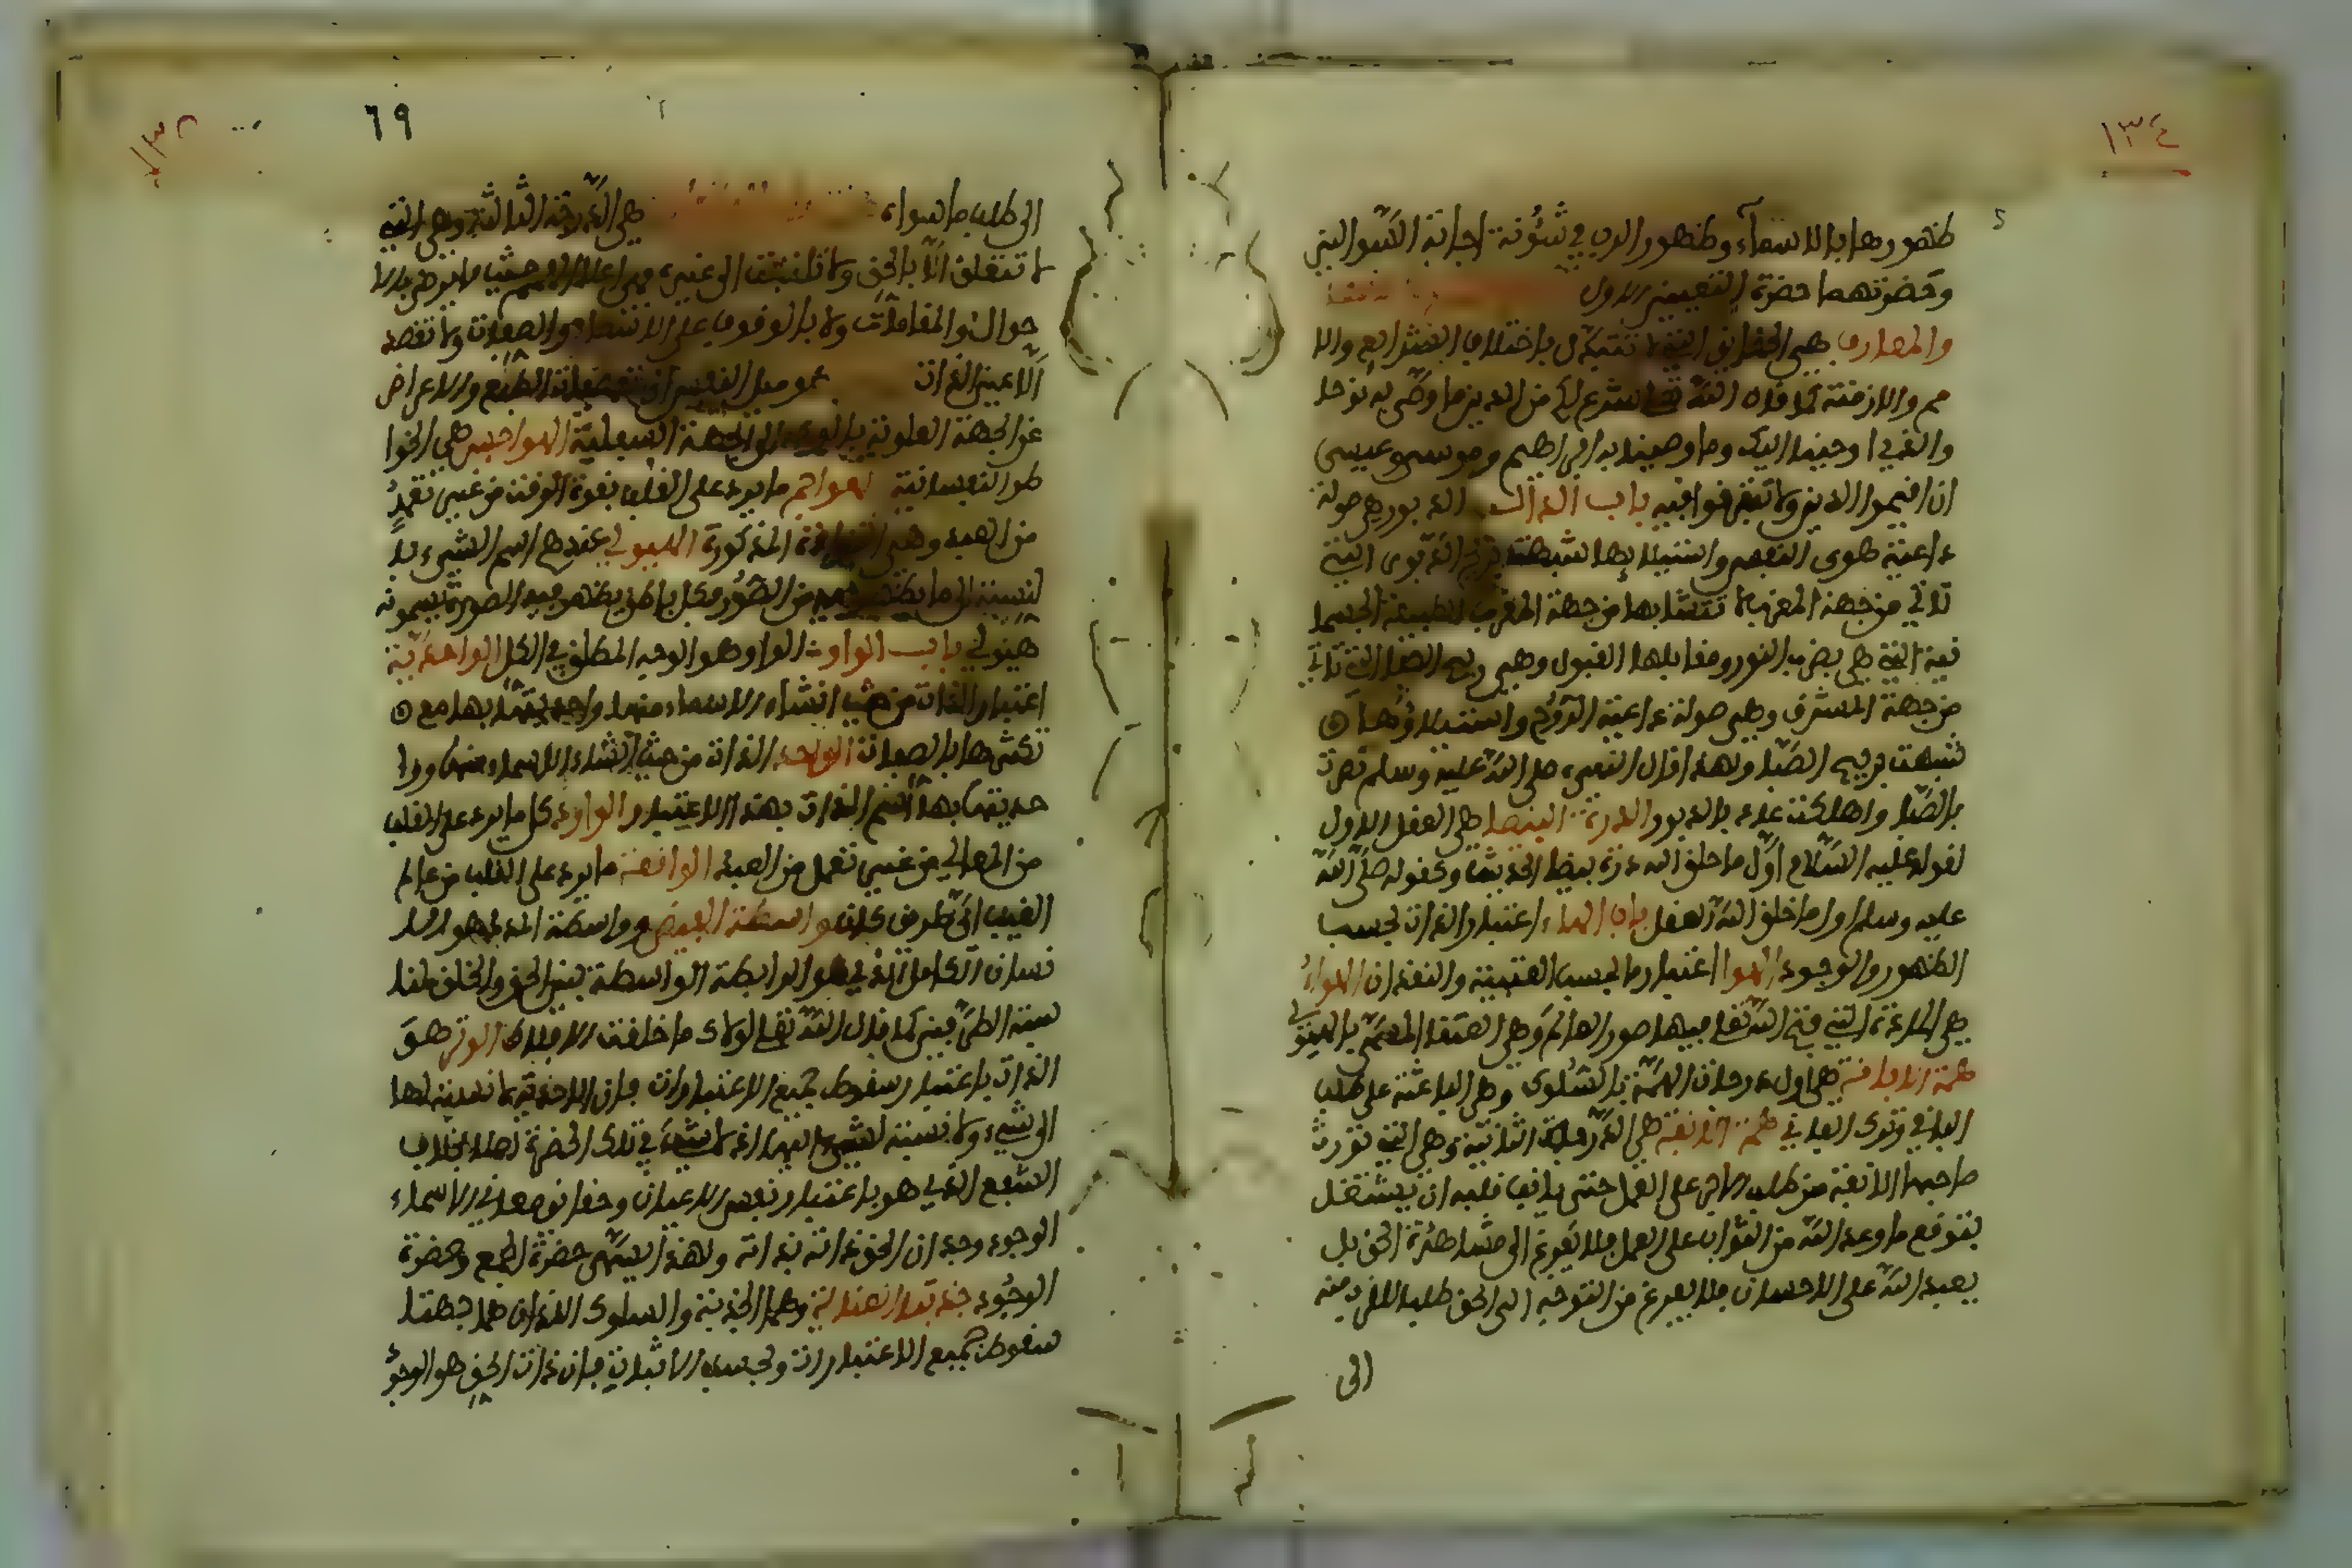 ١٣٤
ظهورها بالاسماء وظهور الرب في شؤنه اجابة السؤالين
وحضرتهما حضرة التعيين الاول
والمعارف هي الحقايق التي لا تتبدل باختلاف الشرايع والا
مم والازمنة كما قال الله تعالى شرع لكم من الدين ما وصى به نوحا
والذي اوحينا اليك وما وصينا به ابراهيم وموسى وعيسى
ان اقيموا الدين ولا تتفرقوا فيه باب الدال الدبور هي صولة
داعية هوى النفس واستيلاءها شبهت بريح الدبور التي
تاتي من جهة المغرب لا تنشأبها من جهة المغرب الطبيعة الجسما
نية التي هي مغرب النور ومقابلها القبول وهي ريح الصبا التي تاتي
من جهة المشرق وهي صولة داعية الروح واستيلاؤها
شبهت بريح الصبا ولهذا قال النبي صلى الله عليه وسلم نصرت
بالصبا واهلكت عاد بالدبور الدرة البيضا هي العقل الاول
لقوله عليه السلام اول ما خلق الله درة بيضا الحديث وكقوله صلى الله
عليه وسلم اول ما خلق الله العقل باب الهاء اعتبار الذات بحسب
الظهور والوجود الهوا اعتبارها بحسب الغيبة والفقدان الهواء
هي المادة التي فتح الله تعالى فيها صور العالم وهي العنقا المسمى بالهيولي
همة الافاقة هي اول درجات الهمة بالسلوك وهي الباعثة على طلب
الباقي وترك الفاني همة الانفة هي الدرجة الثانية وهي التي تورث
صاحبها الانفة من طلب الاجر على العمل حتى يانف قلبه ان يشتغل
بتوقع ما وعد الله من الثواب على العمل فلا يفرغ الى مشاهدة الحق بل
يعبد الله على الاحسان فلا يفرغ من التوجه الى الحق طلبا للقرب منه
الى
٦٩
الى طلب ما سواه هي الدرجة الثالثة وهي التي
لا تتعلق الا بالحق ولا تلتفت الى غيره فهي اعلى الهمم حيث لا ترضى بالا
حوال والمقامات ولا بالوقوف على الاسماء والصفات ولا تقصد
الا عين الذات هو ميل النفس الى مقتضيات الطبع والاعراض
عن الجهة العلوية بالتوجه الى الجهة السفلية الهواجس هي الخوا
طر النفسانية الهواجم ما يرد على القلب بقوة الوقت من غير تعمد
من العبد وهي البوادة المذكورة الهيولي عندهم اسم الشيء بالا
لنسبة الى ما يظهر فيه من الصور فكل باطن يظهر فيه الصورة يسمونه
هيولي باب الواو الواو هو الوجه المطلق في الكل الواحدية
اعتبار الذات من حيث انتشاء الاسماء منها واحديتها بها مع
تكثرها بالصفات الواحد الذات من حيث انتشاء الاسماء منها ووا
حديتها بها اسم الذات بهذا الاعتبار الوارد كل ما يرد على القلب
من المعاني من غير تعمل من العبد الواقعة ما يرد على القلب من عالم
الغيب اي طريق كان واسطة الفيض وواسطة المدد هو الا
نسان الكامل الذي هو الرابطة الواسطة بين الحق والخلق لمنا
سبته الطرفين كما قال الله تعالى لولاك ما خلقت الافلاك الوتر هو
الذات باعتبار سقوط جميع الاعتبارات فان الاحدية لا نسبة لها
الى شيء ولا نسبة لشيء اليها اذ لا شيء في تلك الحضرة اصلا بخلاف
الشفع الذي هو باعتبار تعين الاعيان وحقايق معاني الاسماء
الوجود وجدان الحق ذاته بذاته ولهذا يسمى حضرة الجمع وحضرة
الوجود جذبة العناية وهما الجذبة والسلوك اللذان هما جهتا
سقوط جميع الاعتبارات وبحسب الاثباتية فان ذات الحق هو الوجو